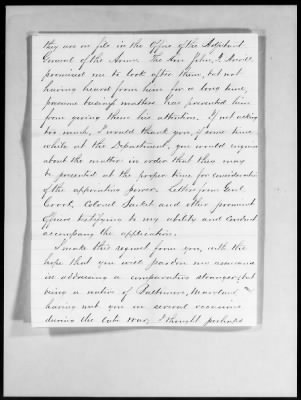 they are on file in the Office of the Adjutant
General of the Army. The Hon John,
promised me to look after them, but not
having heard from him for a long time,
presume business matters has prevented him
from giving them his attention. If not asking
too much, I would thank you, if some time
while at the Department, you would enquire
about the matter in order that they may
be presented at the proper time for consideration
of the appointing power. Letters from Genl
Colonel and other prominent
officers testifying to my ability and conduct
accompany the application.
I make this request from you, with the
hope that you will pardon my assurance
in addressing a comparative stranger, but
being a native of Baltimore, Maryland,
having met you on several occasions
during the late war, I thought perhaps